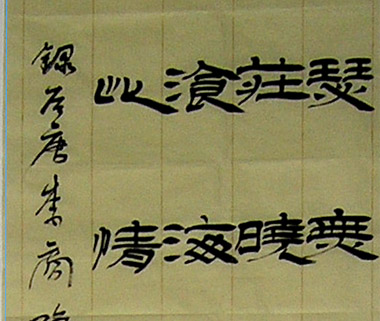 瑟無
莊曉
滄海
此情
錄唐李商